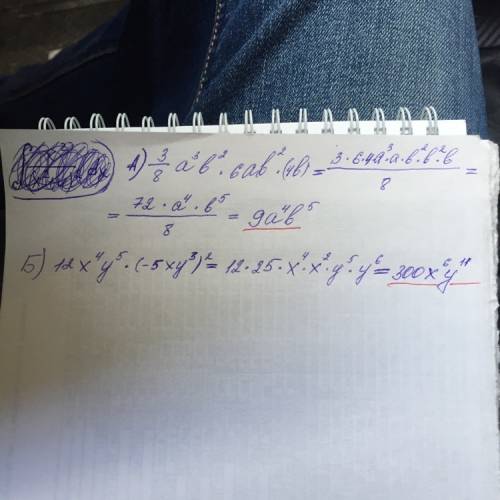 А) 3/8 a³b² · 6ab² · (4b) = 3·6·4a³·a·b²·b²·b/8 =
= 72·a⁴·b⁵/8 = 9a⁴b⁵
Б) 12x⁴y⁵·(-5xy³)² = 12·25·x⁴·x²·y⁵·y⁶ = 300x⁶y¹¹